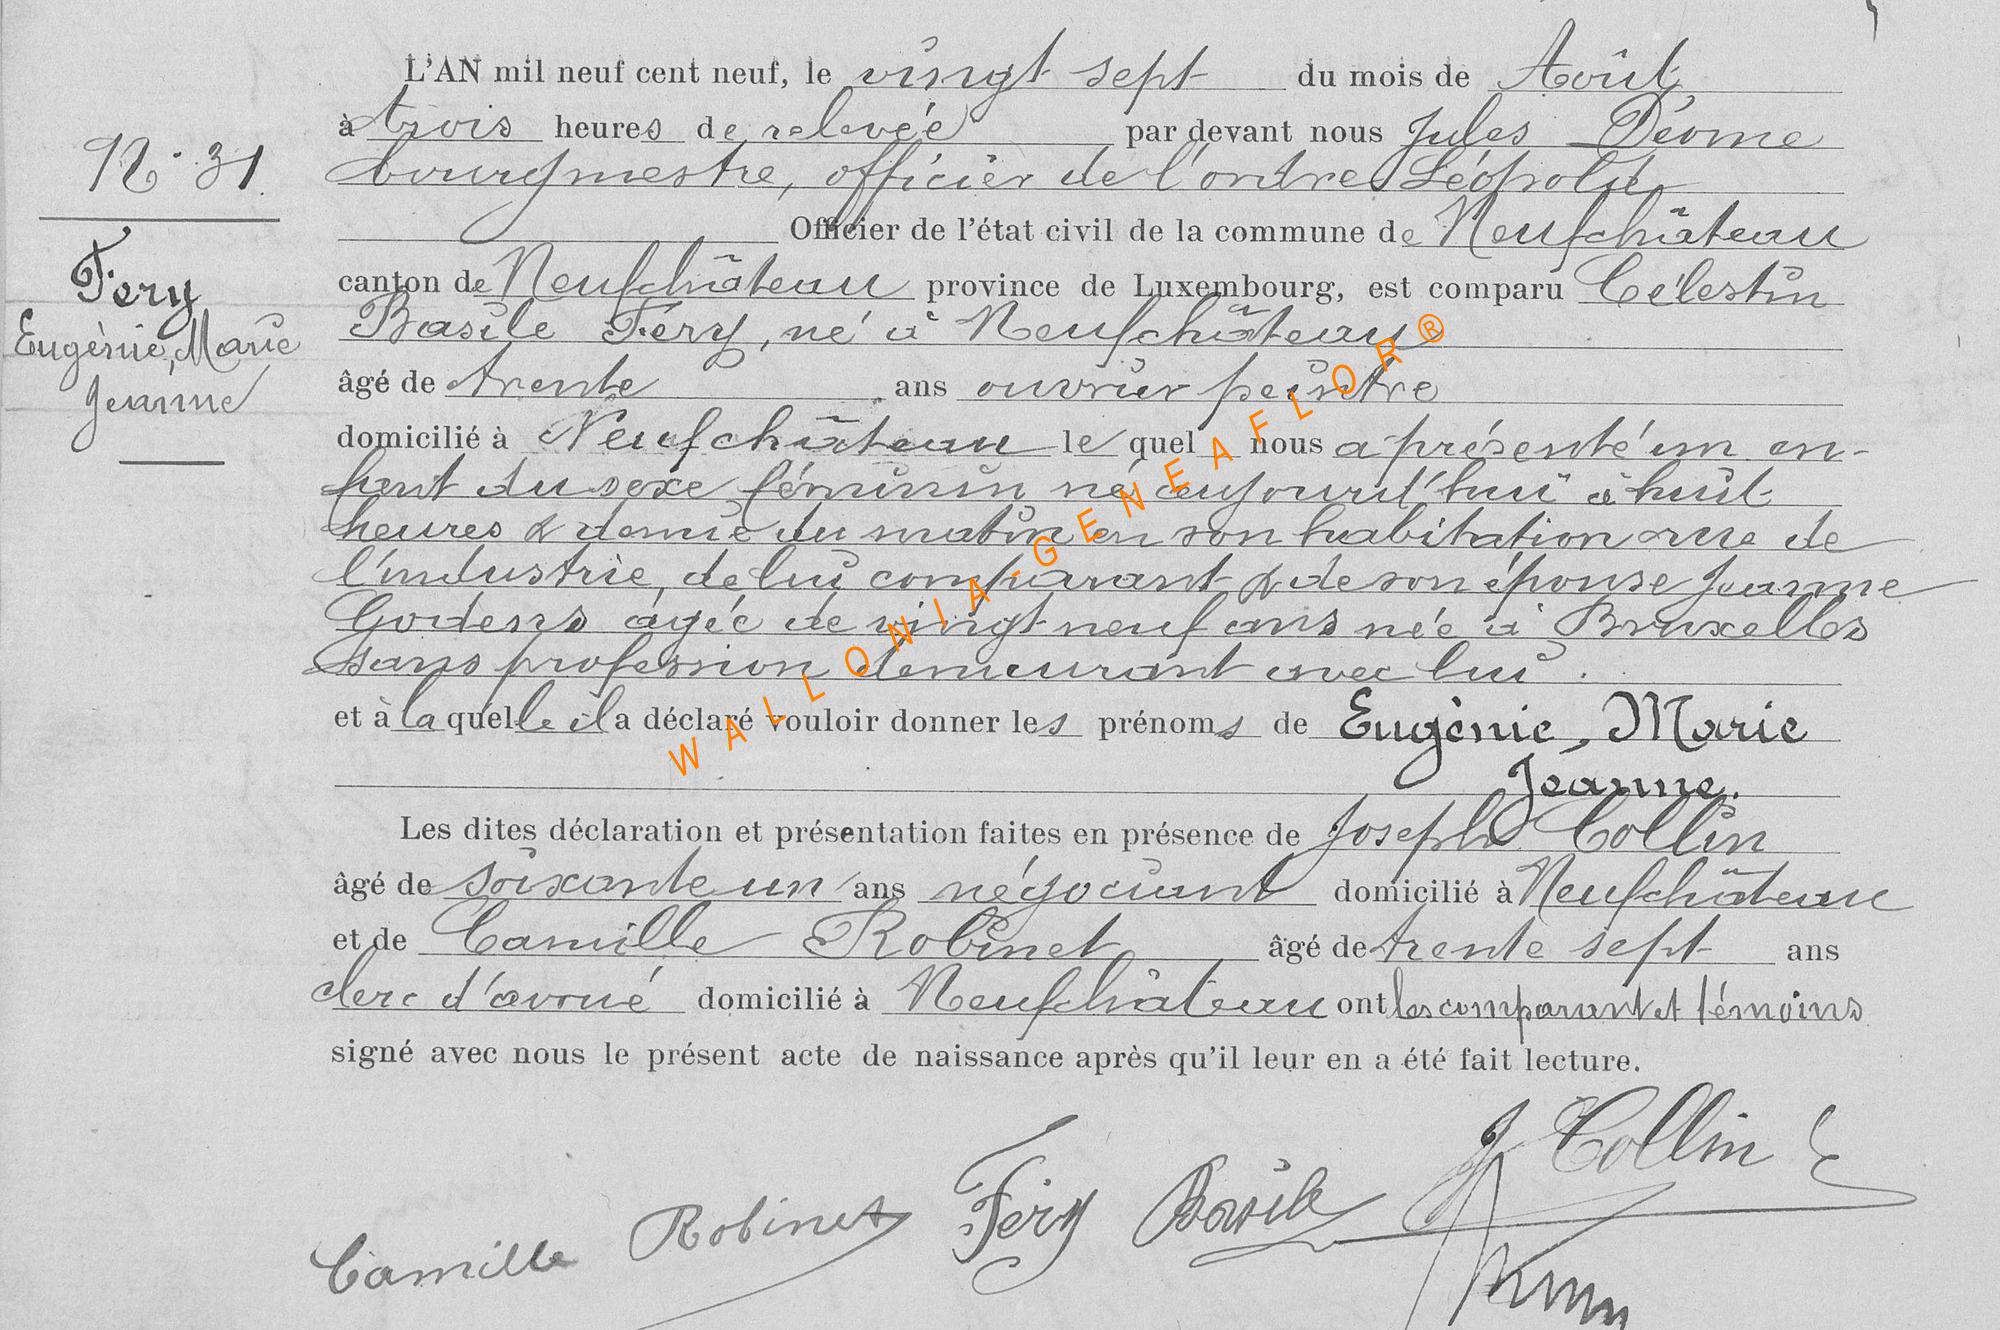 L'AN mil neuf cent neuf, le vingt sept du mois de Août
à trois heures de relevée par devant nous Jules Déome
bourgmestre, officier de l'ordre Léopold
Officier de l'état civil de la commune de Neufchâteau
canton de Neufchâteau province de Luxembourg, est comparu Célestin
Basile Féry, né à Neufchâteau
âgé de trente ans ouvrier peintre
domicilié à Neufchâteau le quel nous a présenté un en-
fant du sexe féminin né aujourd'hui à huit
heures & demie du matin en son habitation rue de
l'industrie, de lui comparant & de son épouse Jeanne
Godens agée de vingt neuf ans née à Bruxelles
sans profession demeurant avec lui.
et à la quelle il a déclaré vouloir donner les prénoms de Eugènie, Marie
Jeanne.
Les dites déclaration et présentation faites en présence de Joseph Collin
âgé de soixante un ans négociant domicilié à Neufchâteau
et de Camille Robinet âgé de trente sept ans
clerc d'avoué domicilié à Neufchâteau ont les comparant et témoins
signé avec nous le présent acte de naissance après qu'il leur en a été fait lecture.
N° 31
Féry
Eugènie, Marie
Jeanne
J Collin
Camille Robinet Féry Basile
WALLONIA-GENEAFLOR®